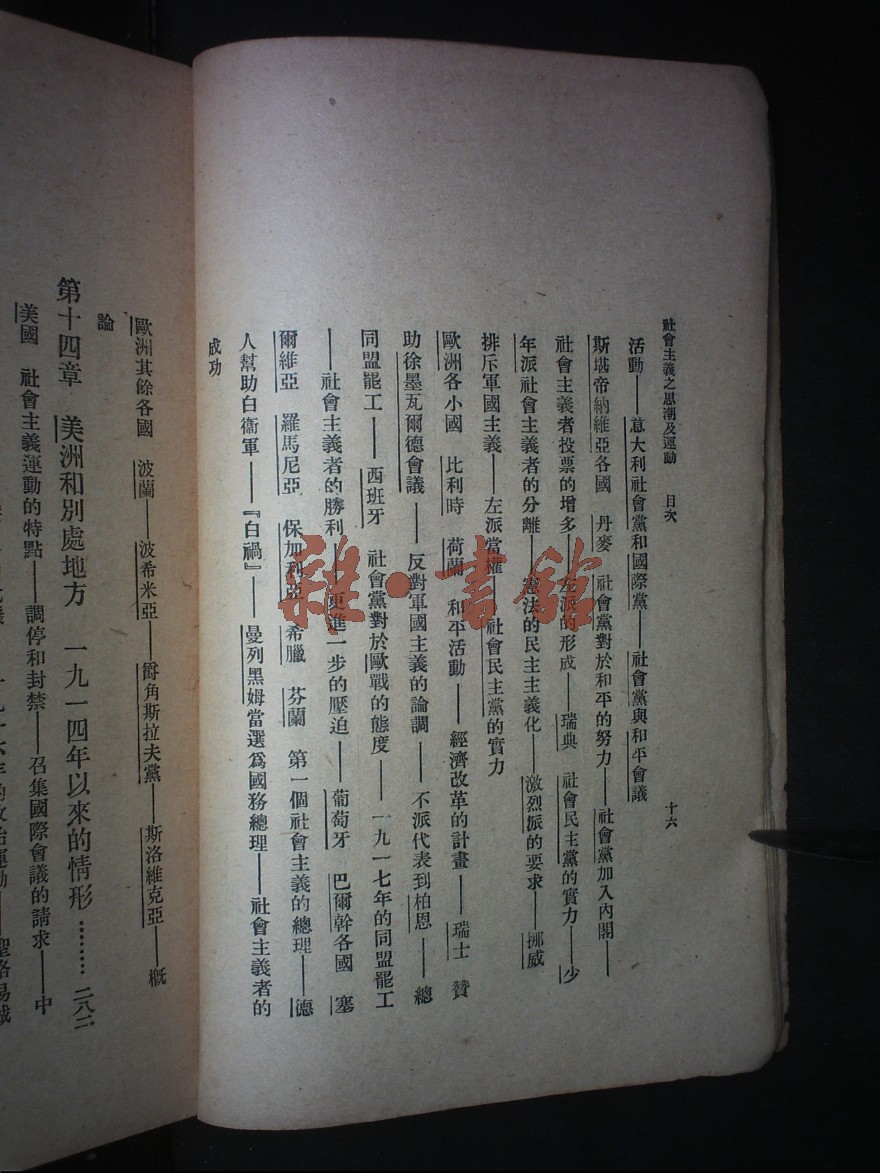 社會主義之思潮及運動 目次 十六
活動——意大利社會黨和國際黨——社會黨與和平會議
斯堪帝納維亞各國 丹麥 社會黨對於和平的努力——社會黨加入內閣——
社會主義者投票的增多——左派的形成——瑞典 社會民主黨的實力——少
年派社會主義者的分離——憲法的民主主義化——激烈派的要求——挪威
排斥軍國主義——左派當權——社會民主黨的實力
歐洲各小國 比利時 荷蘭 和平活動——經濟改革的計畫——瑞士 贊
助徐墨瓦爾德會議——反對軍國主義的論調——不派代表到柏恩——總
同盟罷工——西班牙 社會黨對於歐戰的態度——一九一七年的同盟罷工
——社會主義者的勝利——更進一步的壓迫——葡萄牙 巴爾幹各國 塞
爾維亞 羅馬尼亞 保加利亞 希臘 芬蘭 第一個社會主義的總理——德
人幫助白衞軍——『白禍』——曼列黑姆當選爲國務總理——社會主義者的
成功
歐洲其餘各國 波蘭——波希米亞——爵角斯拉夫黨——斯洛維克亞——概
論
第十四章 美洲和別處地方 一九一四年以來的情形………二八二
美國 社會主義運動的特點——調停和封禁——召集國際會議的請求——中
雜·書館